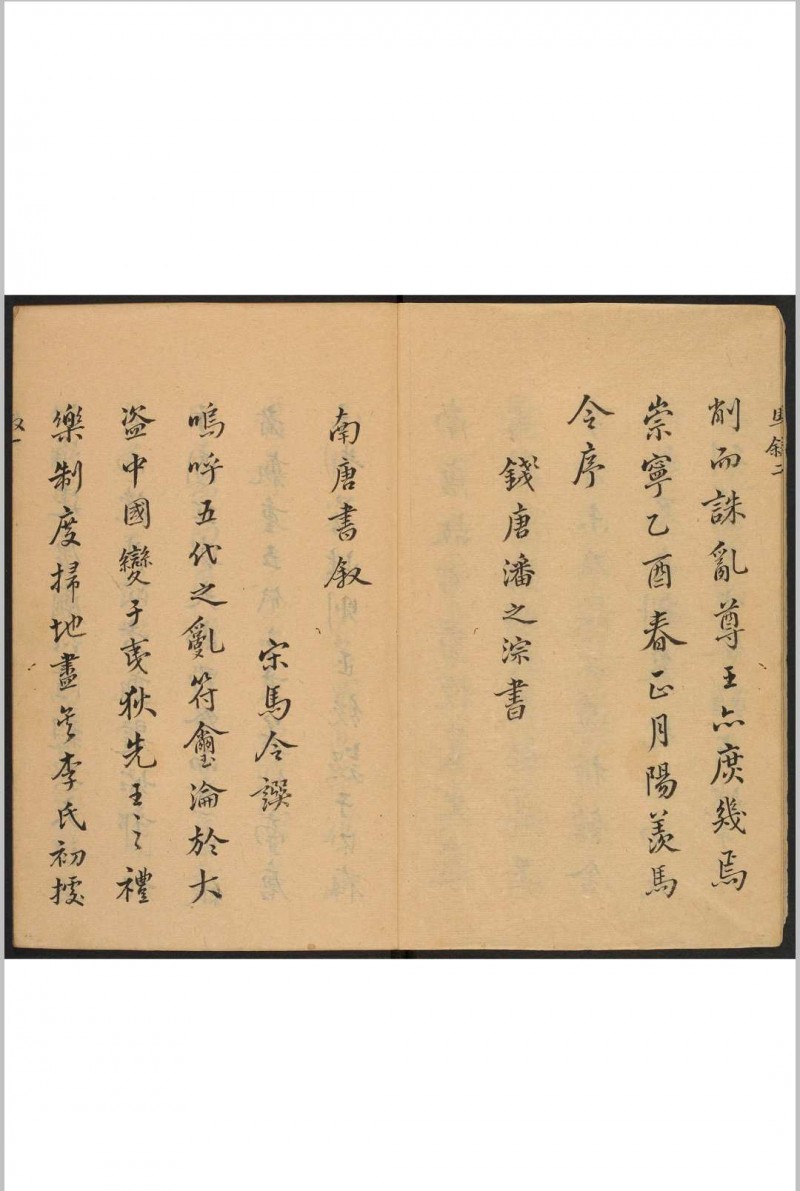 馬敘二
削而誅亂尊王亦庶幾焉
崇寧乙酉春正月陽羨馬
令序
錢唐潘之淙書
南唐書敘
宋馬令譔
嗚呼五代之亂符璽淪於大
盜中國變于夷狄先王之禮
樂制度掃地盡矣李氏初據
敘一